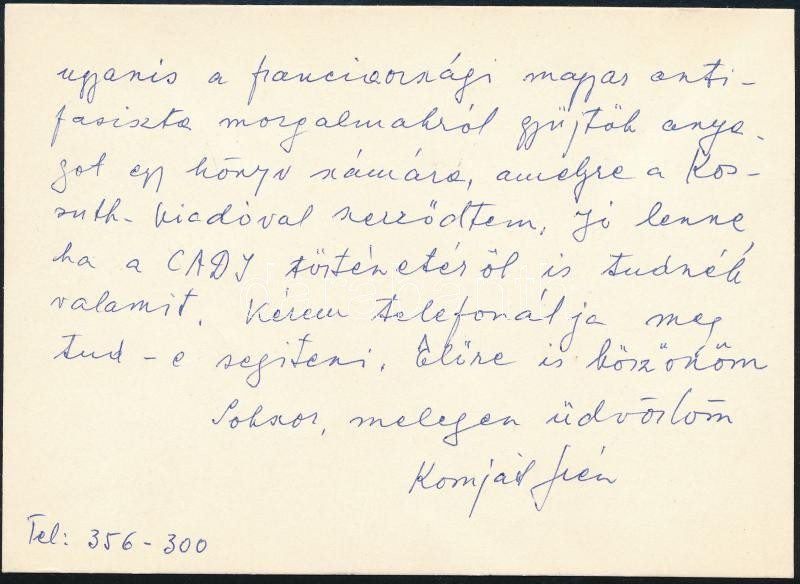 ugyanis a franciaországi magyar anti-
fasiszta mozgalmakról gyüjtök anya-
got egy könyv számára, amelyre a Kos-
suth-kiadóval szerződtem. Jó lenne,
ha a CADI történetéről is tudnék
valamit. Kérem telefonálja meg
tud-e segiteni. Előre is köszönöm
Sokszor, melegen üdvözlöm
Komját Irén
Tel: 356-300